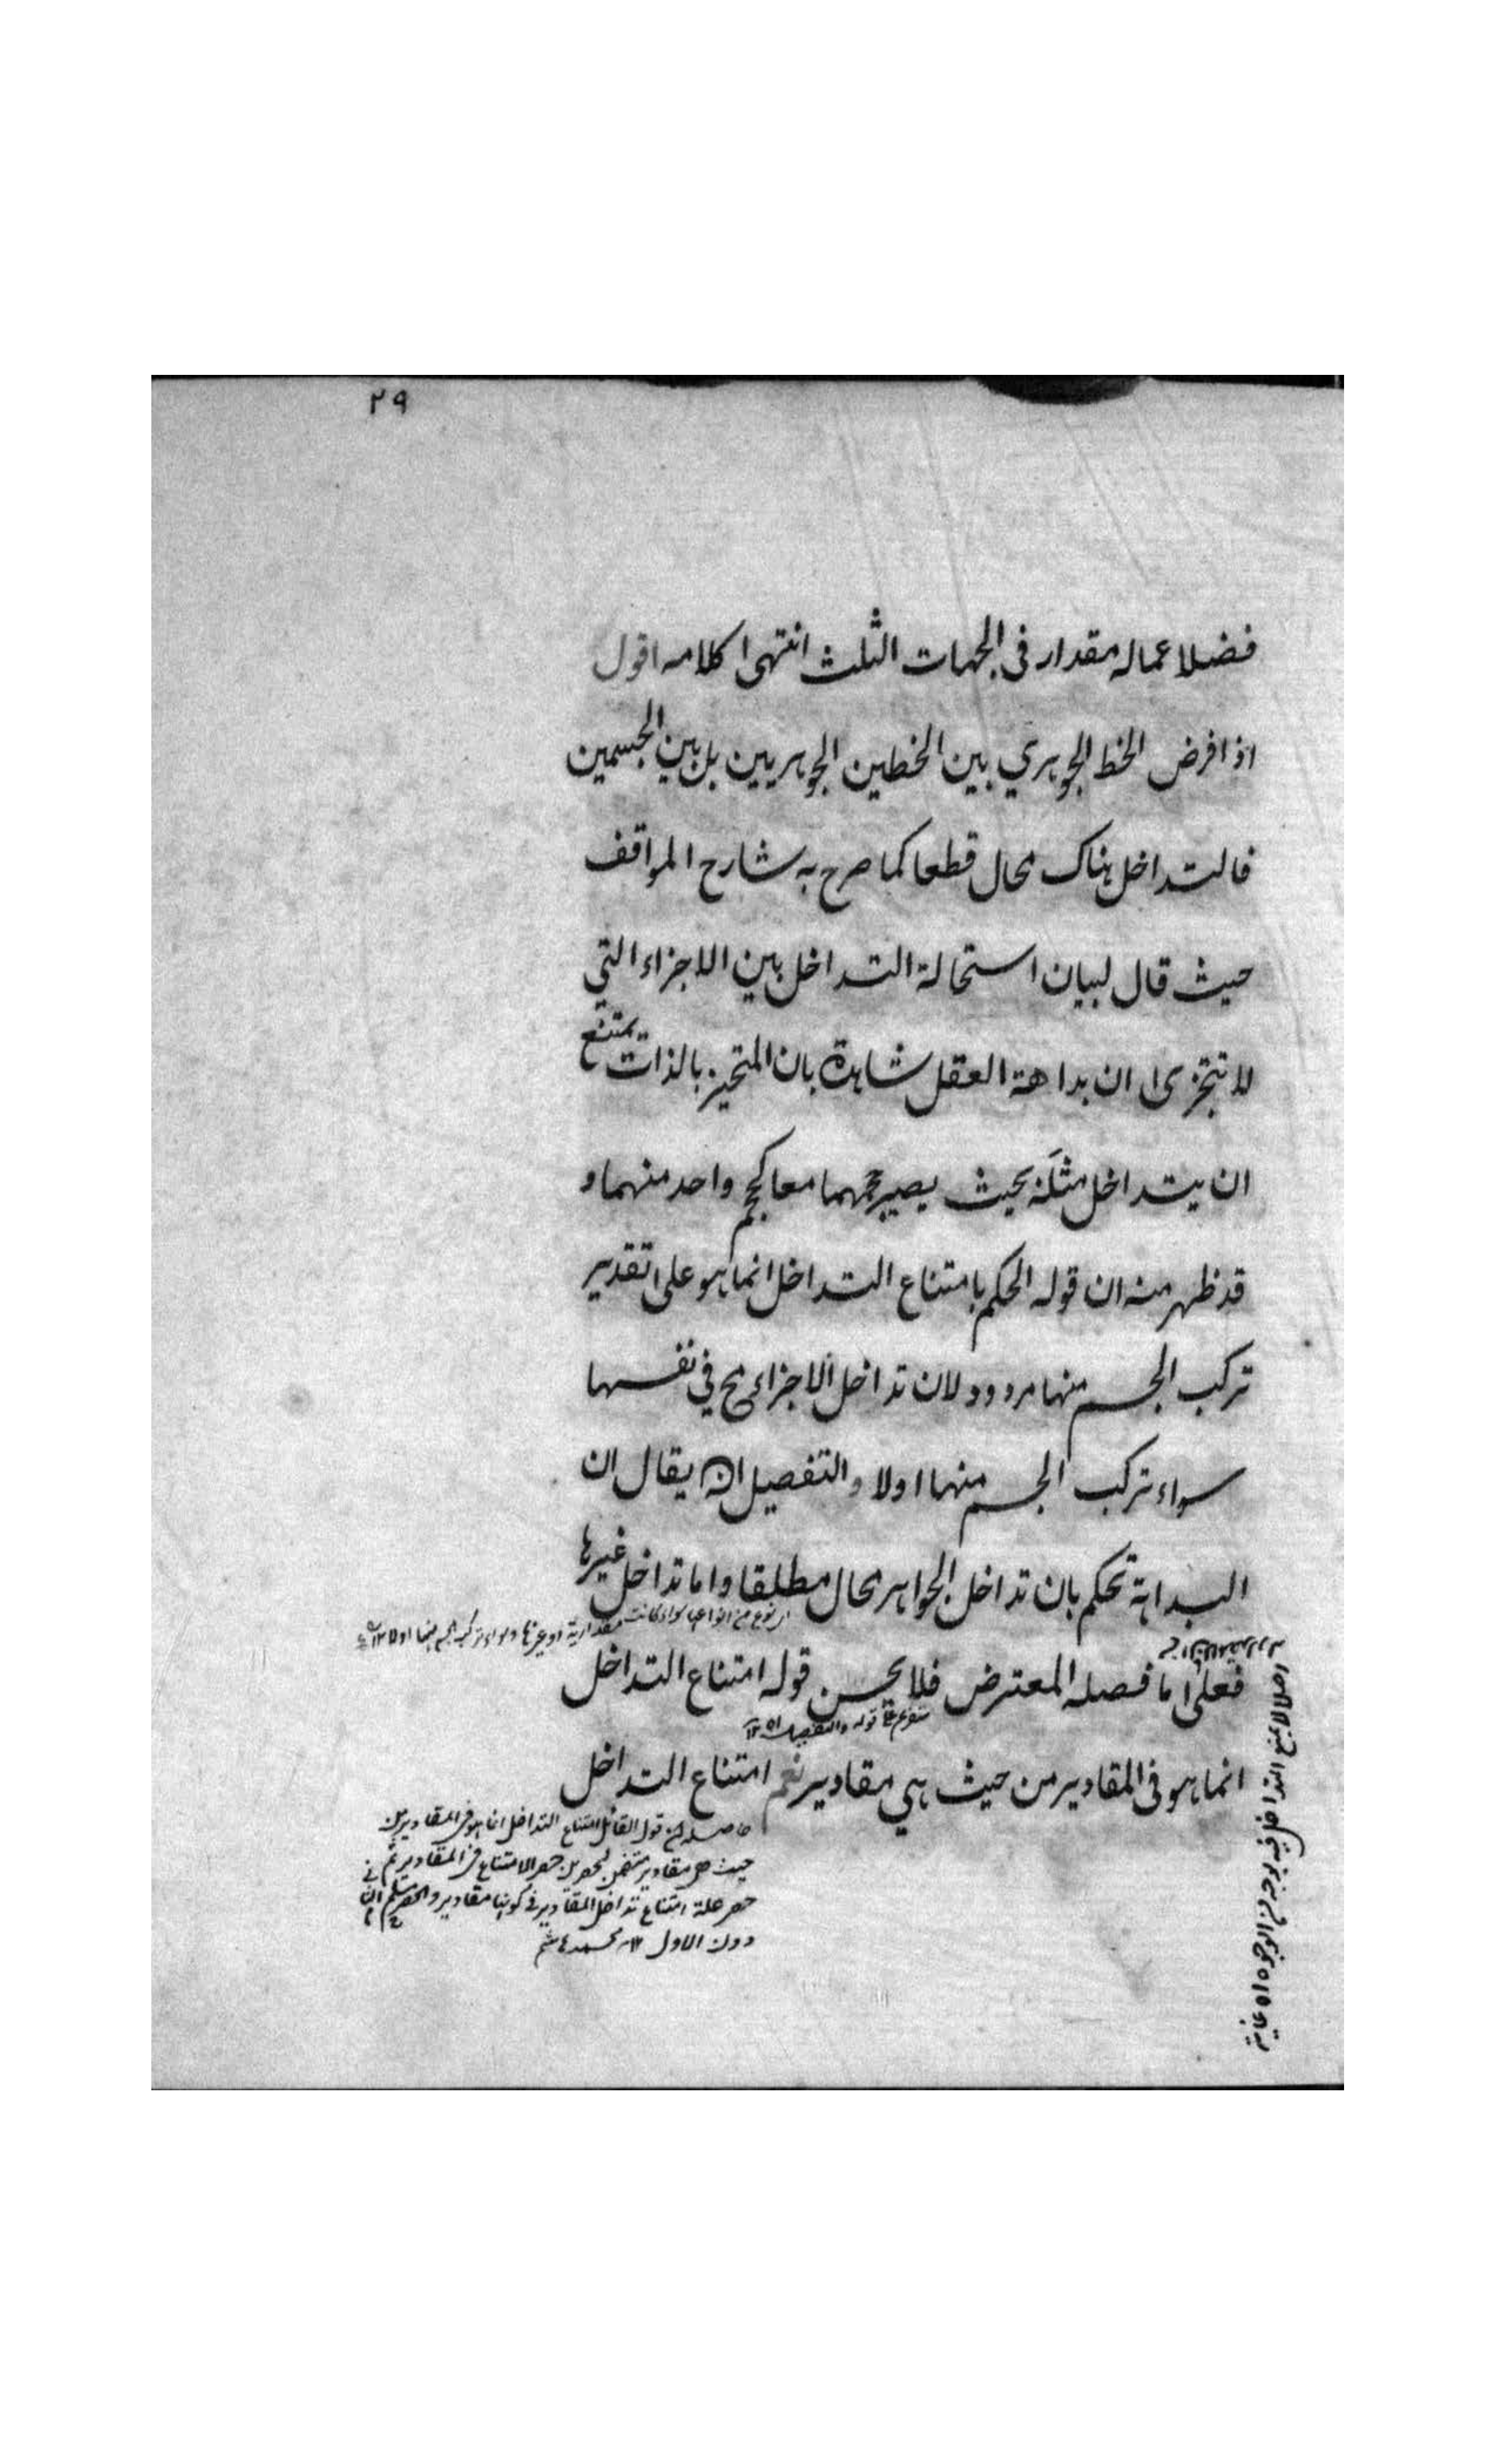 ٢٩
فضلا عماله مقدار فى الجهات الثلث انتهى كلامه اقول
اذا فرض الخط الجوهري بين الخطين الجوهريين بل بين الجسمين
فالتداخل هناك محال قطعا كما صرح به شارح المواقف
حيث قال لبيان استحالة التداخل بين الاجزاء التي
لا تتجزى ان بداهة العقل شاهدة بان المتحيز بالذات يمتنع
ان يتداخل مثله بحيث يصير حجمهما معا كحجم واحد منهما و
قد ظهر منه ان قوله الحكم بامتناع التداخل انما هو على تقدير
تركب الجسم منها مردود لان تداخل الاجزاء مح في نفسها
سواء تركب الجسم منها اولا والتفصيل ان يقال ان
البداهة تحكم بان تداخل الجواهر محال مطلقا واما تداخل غيرها
اي نوع من انواعها سواء كانت مقدارية او غيرها وسواء تركب الجسم منها اولا ١٢
فعلى ما فصله المعترض فلا يحسن قوله امتناع التداخل
قوله والتفصيل ان ١٢
انما هو فى المقادير من حيث هي مقادير نعم امتناع التداخل
حاصله ان قول القائل امتناع التداخل انما هو فى المقادير من
حيث هى مقادير متضمن لحصرين حصر الامتناع فى المقادير ثم
حصر علة امتناع تداخل المقادير فى كونها مقادير والحصر مسلم
دون الاول ١٢ محمد هاشم